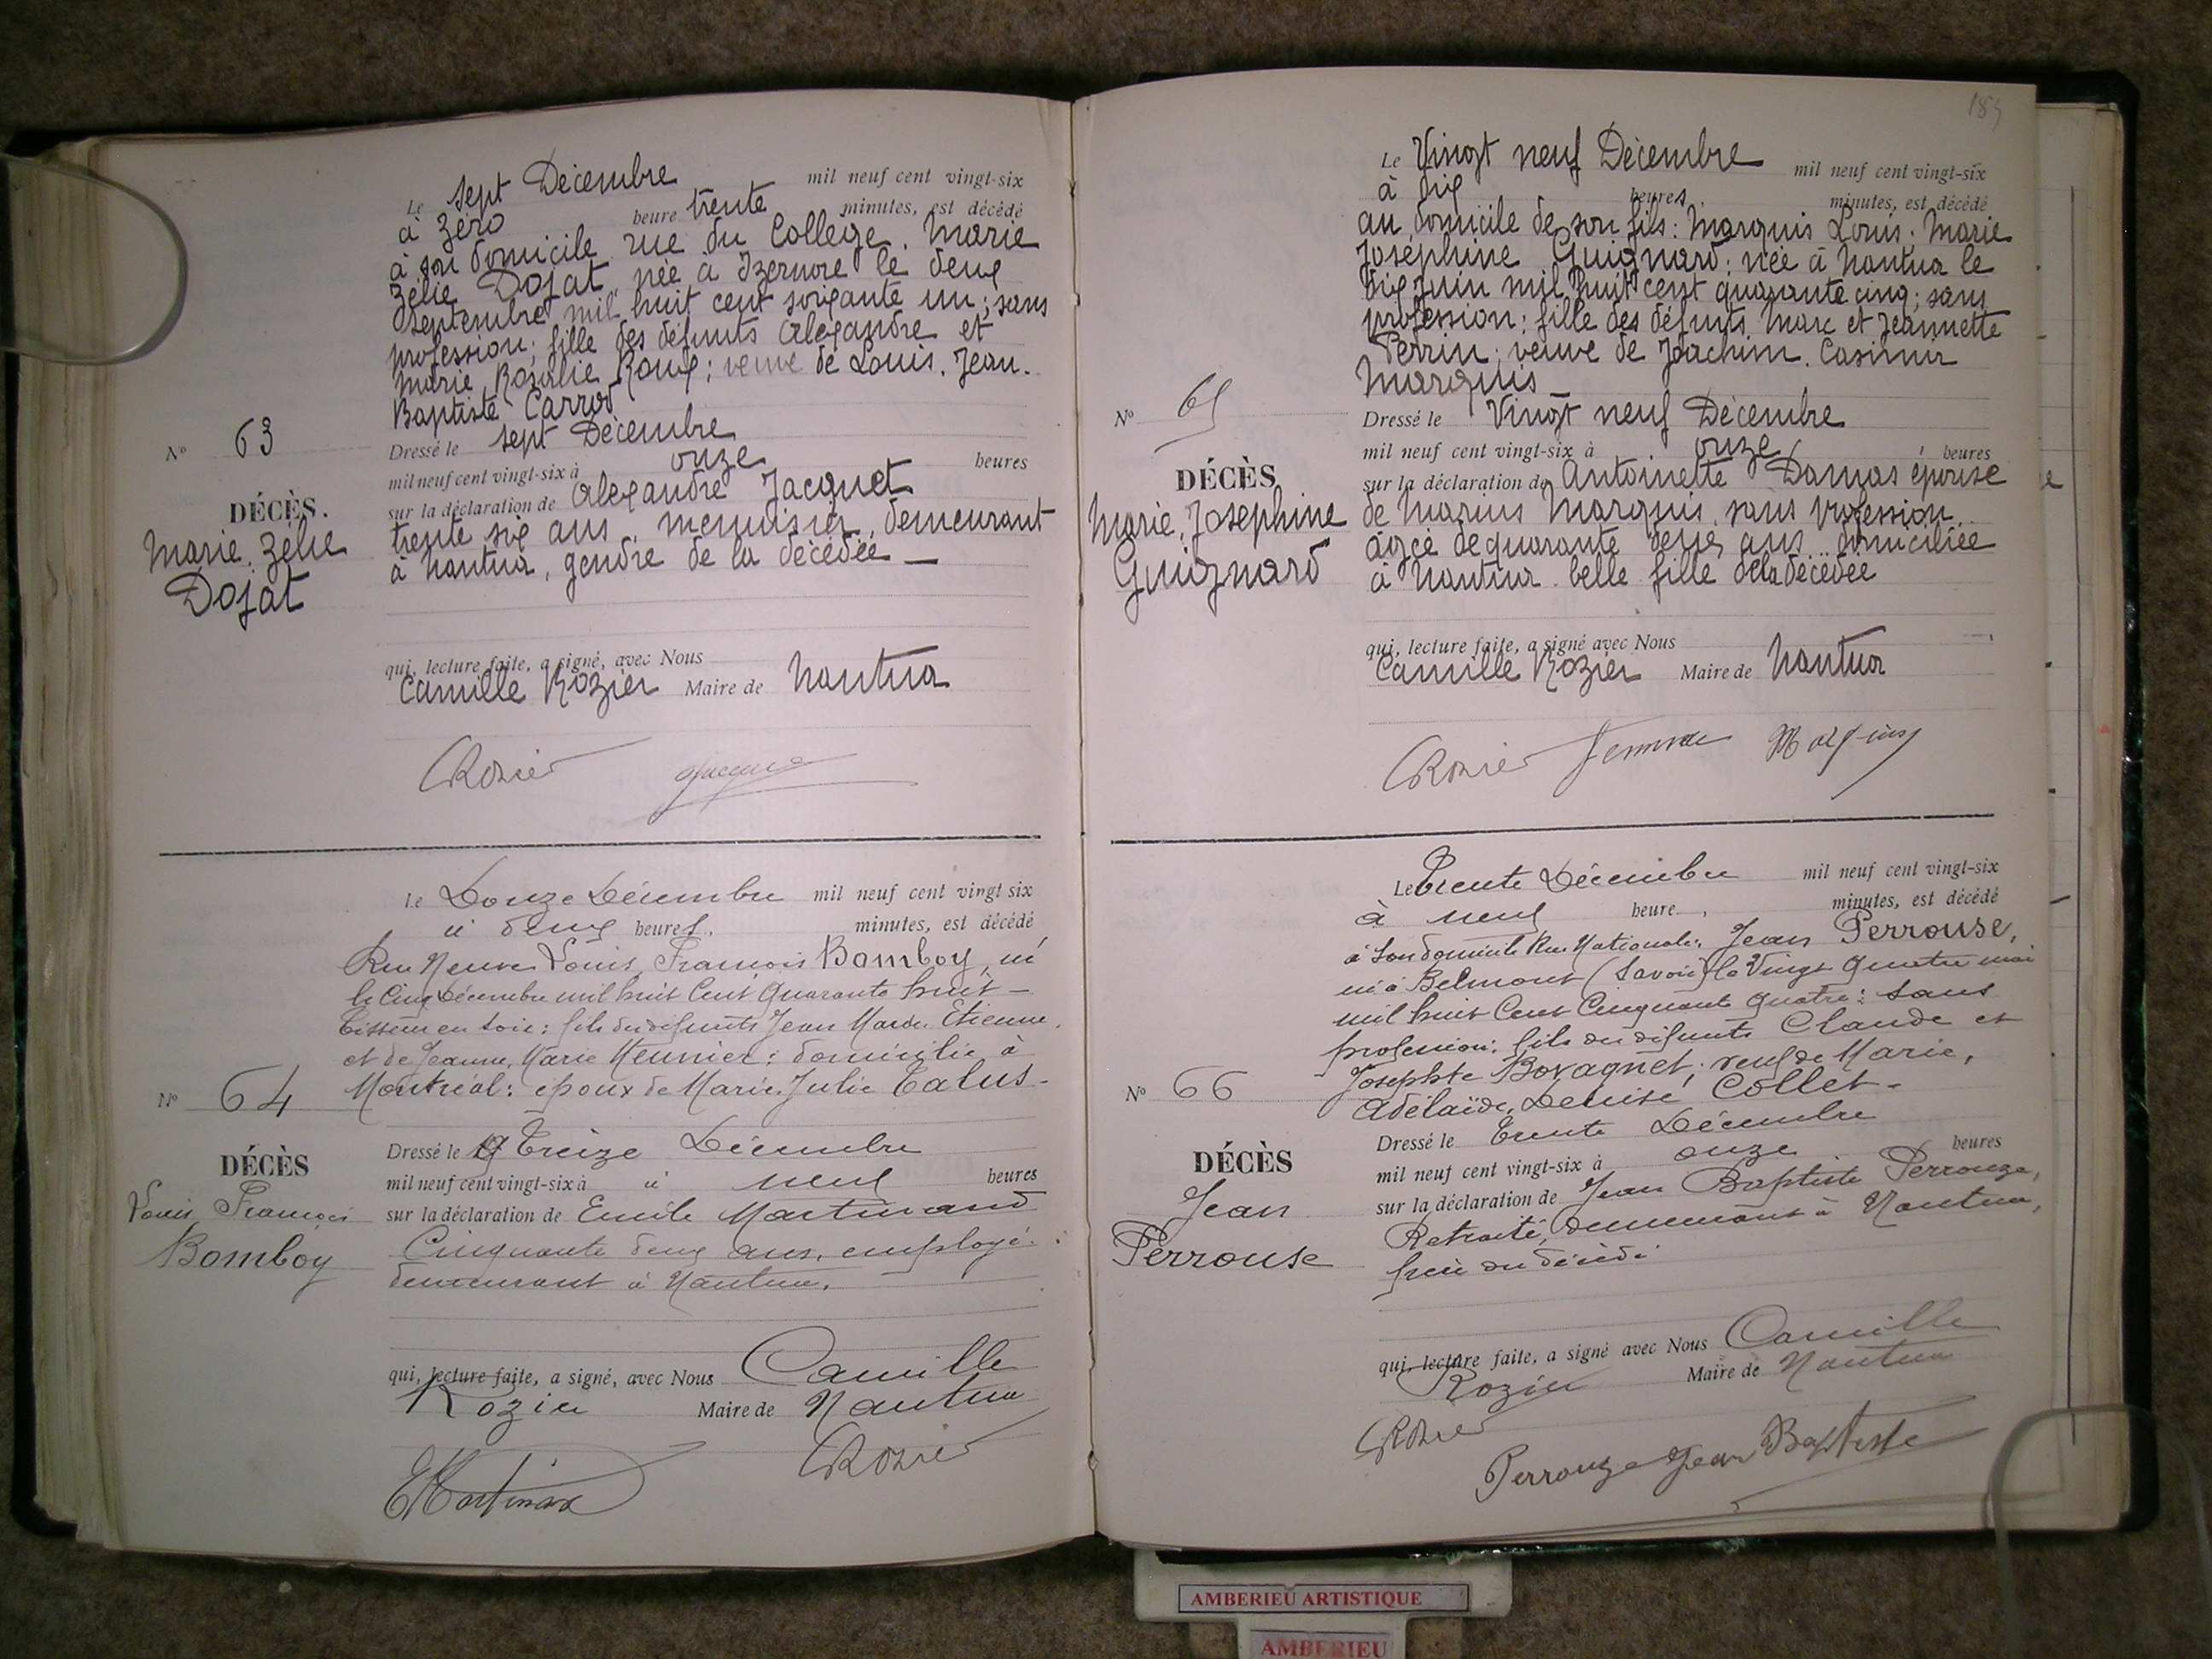 Le sept Décembre mil neuf cent vingt-six
à zéro heure trente minutes, est décédé
à son domicile rue du College. Marie
Zélie Dojat, née à Izernore le deux
septembre mil huit cent soixante un; sans
profession; fille des défunts Alexandre et
Marie Rosalie Roux; veuve de Louis. Jean.
Baptiste Carrod
Dressé le sept Décembre
mil neuf cent vingt-six à onze heures
sur la déclaration de Alexandre Jacquet
trente six ans, menuisier, demeurant
à Nantua, gendre de la décédée
N° 63
DÉCÈS.
Marie. Zélie
Dojat
qui, lecture faite, a signé, avec Nous
Camille Rozier Maire de Nantua
CRozier Jacquet
Le Douze Décembre mil neuf cent vingt six
à deux heures. minutes, est décédé
Rue Neuve Louis, François Bomboy, né
le Cinq Décembre mil huit Cent Quarante huit
Tisseur en Soie: fils des défunts Jean Marie. Etienne.
et de Jeanne, Marie Meunier: domicilié à
Montréal: époux de Marie. Julie Talus
N° 64
DÉCÈS
Louis François
Bomboy
Dressé le Treize Décembre
mil neuf cent vingt-six à à neuf heures
sur la déclaration de Emile Martinand
Cinquante deux ans, employé.
demeurant à Nantua.
qui, lecture faite, a signé, avec Nous Camille
Rozier Maire de Nantua
EMartinand CRozier
184
Le Vingt neuf Décembre mil neuf cent vingt-six
à dix heures minutes, est décédé
au domicile de son fils: Marquis Louis. Marie
Joséphine Guignard: née à Nantua le
dix juin mil huit cent quarante cinq; sans
profession; fille des défunts Marc et Jeannette
Perrin; veuve de Joachim. Casimir
Marquis
N° 65
DÉCÈS
Marie. Josephine
Guignard
Dressé le Vingt neuf Décembre
mil neuf cent vingt-six à onze heures
sur la déclaration de Antoinette Damas épouse
de Marius Marquis, sans profession,
âgée de quarante deux ans domiciliée
à Nantua belle fille de la décédée
qui, lecture faite, a signé avec Nous
Camille Rozier Maire de Nantua
CRozier femme Marquis
Le Trente Décembre mil neuf cent vingt-six
à neuf heure minutes, est décédé
à son domicile Rue Nationale, Jean Perrouse,
né à Belmont (Savoie) le Vingt Quatre mai
mil huit Cent Cinquante Quatre: sans
profession: fils des défunts Claude et
Josephte Bovagnet; veuf de Marie,
Adélaïde, Denise Collet
N° 66
DÉCÈS
Jean
Perrouse
Dressé le Trente Décembre
mil neuf cent vingt-six à onze heures
sur la déclaration de Jean Baptiste Perrouze,
Retraité, demeurant à Nantua,
frère du décédé
qui, lecture faite, a signé avec Nous Camille
Rozier Maire de Nantua
CRozier
Perrouze Jean Baptiste
AMBERIEU ARTISTIQUE
AMBERIEU